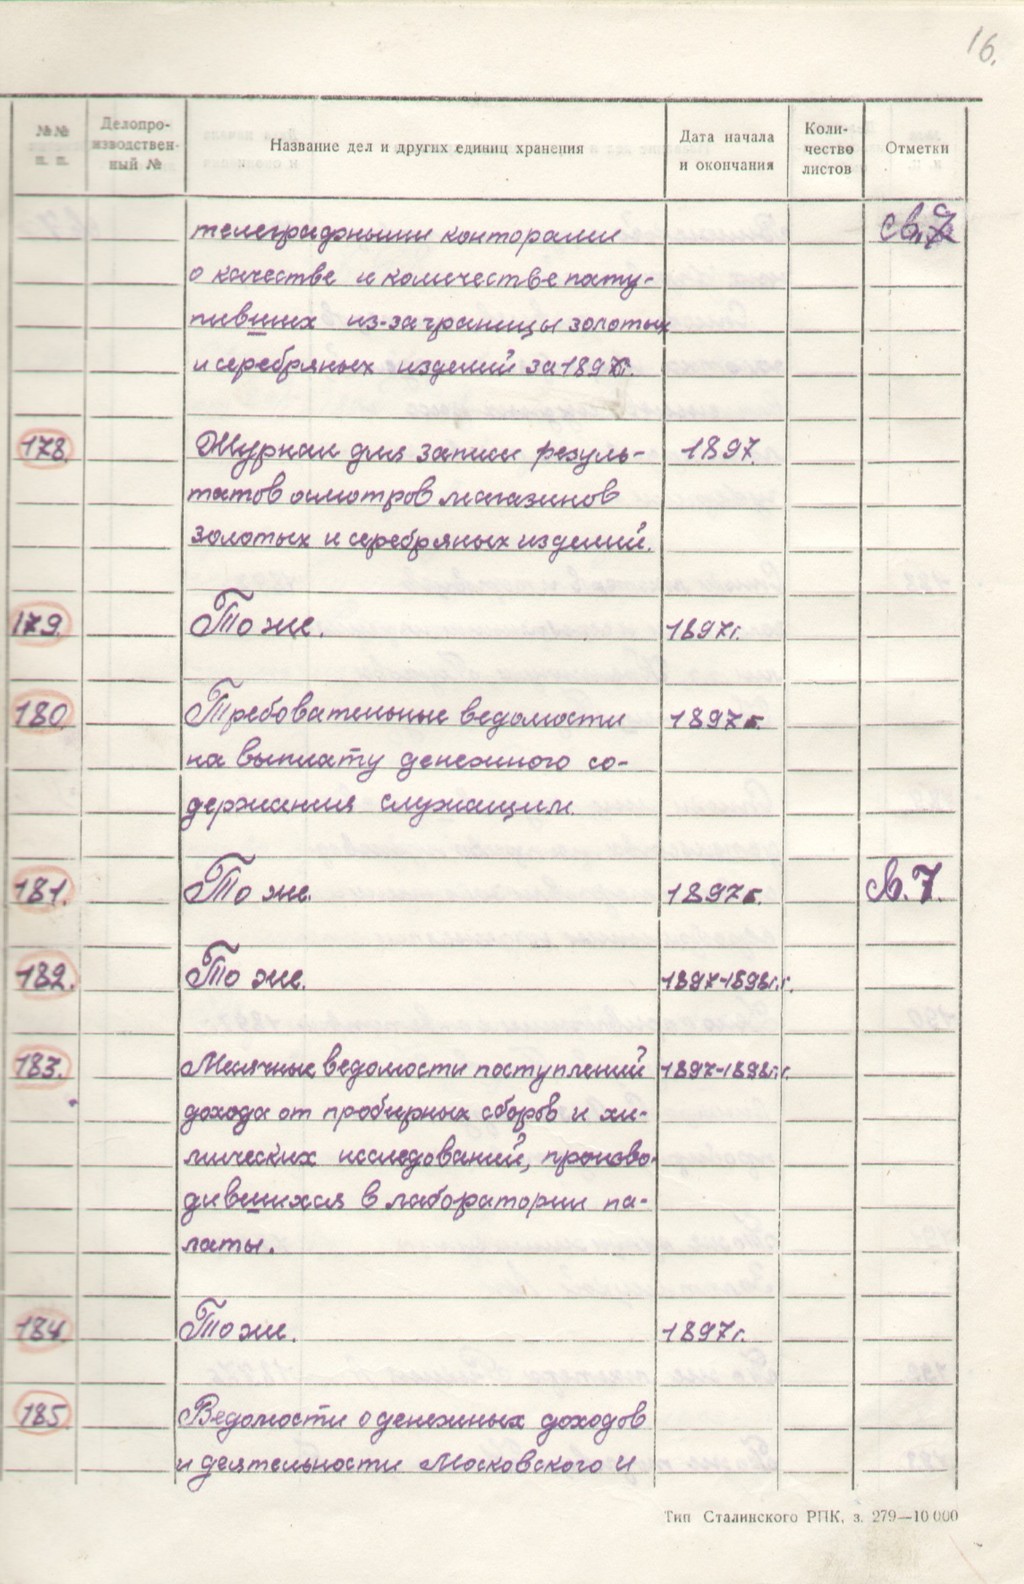 16.
№№ п. п.
Делопро-
изводствен-
ный №
Название дел и других единиц хранения
Дата начала
и окончания
Коли-
чество
листов
Отметки
телеграфными конторами св. 7
о качестве и количестве пату-
пивших из-за границы золотых
и серебряных изделий за 1897г.
178. Журнал для записи резуль- 1897.
татов осмотров магазинов
золотых и серебряных изделий.
179. То же. 1897г.
180. Требовательные ведомости 1897г.
на выплату денежного со-
держания служащим.
181. То же. 1897г. св. 7.
182. То же. 1897-1898г.г.
183. Месячные ведомости поступлений 1897-1898г.г.
дохода от пробирных сборов и хи-
мических исследований, произво-
дившихся в лаборатории па-
латы.
184. То же. 1897г.
185. Ведомости о денежных доходов
и деятельности Московского и
Тип Сталинского РПК, з. 279—10 000